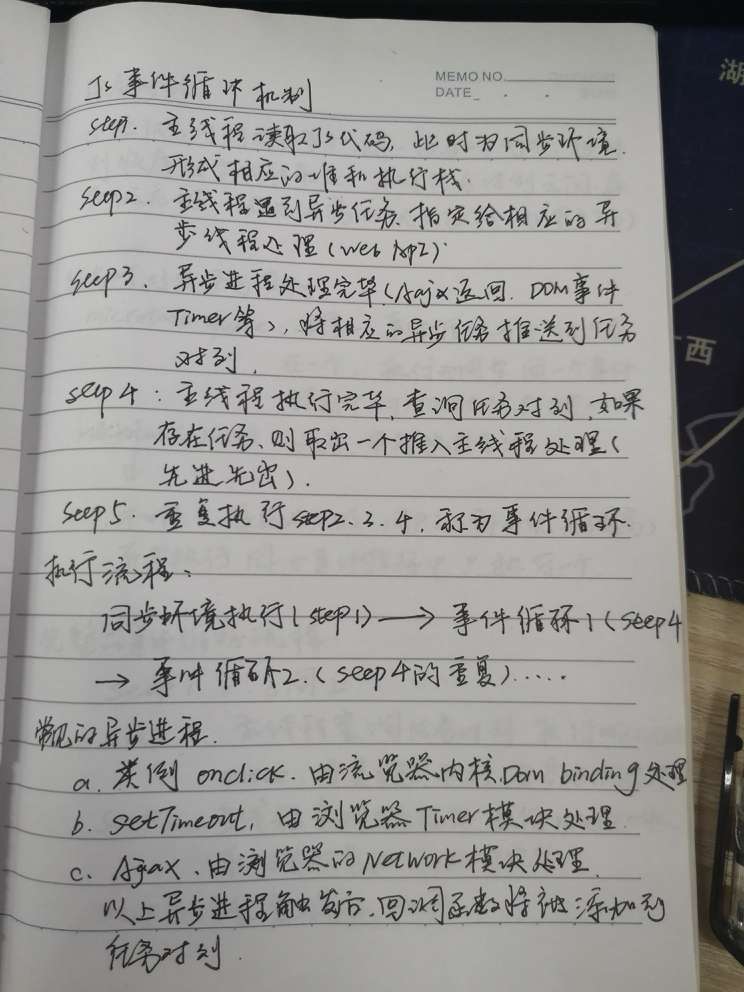 MEMO NO.
DATE . .
湖
Js 事件循环机制
step1. 主线程读取Js代码, 此时为同步环境.
形成相应的堆和执行栈.
seep2. 主线程遇到异步任务. 指定给相应的异
步线程处理(Web ApI).
seep3. 异步进程处理完毕(Ajax返回. DOM事件
Timer等), 将相应的异步任务推送到任务
对列.
西
seep 4 : 主线程执行完毕, 查询任务对列, 如果
存在任务, 则取出一个推入主线程处理(
先进先出).
seep 5. 重复执行 step2. 3. 4, 称为事件循环.
执行流程:
同步环境执行(step1) → 事件循环1(seep4
→ 事件循环2.(seep4的重复).....
常见的异步进程.
a. 类例 onclick. 由流览器内核.Dom binding处理
b. setTimeout, 由浏览器Timer模块处理.
c. Ajax. 由浏览器的Network模块处理.
以上异步进程触发后, 回调函数将被添加到
任务对列.